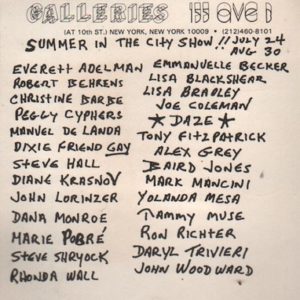 GALLERIES 155 AVE B
(AT 10th ST.) NEW YORK, NEW YORK 10009 • (212)460-8101
SUMMER IN THE CITY SHOW!! JULY 24
AUG 30
EVERETT ADELMAN
ROBERT BEHRENS
CHRISTINE BARBE
PEGGY CYPHERS
MANUEL DE LANDA
DIXIE FRIEND GAY
STEVE HALL
DIANE KRASNOV
JOHN LORINZER
DANA MONROE
MARIE POBRÉ
STEVE SHRYOCK
RHONDA WALL
EMMANUELLE BECKER
LISA BLACKSHEAR
LISA BRADLEY
JOE COLEMAN
★ DAZE ★
TONY FITZPATRICK
ALEX GREY
BAIRD JONES
MARK MANCINI
YOLANDA MESA
TAMMY MUSE
RON RICHTER
DARYL TRIVIERI
JOHN WOODWARD